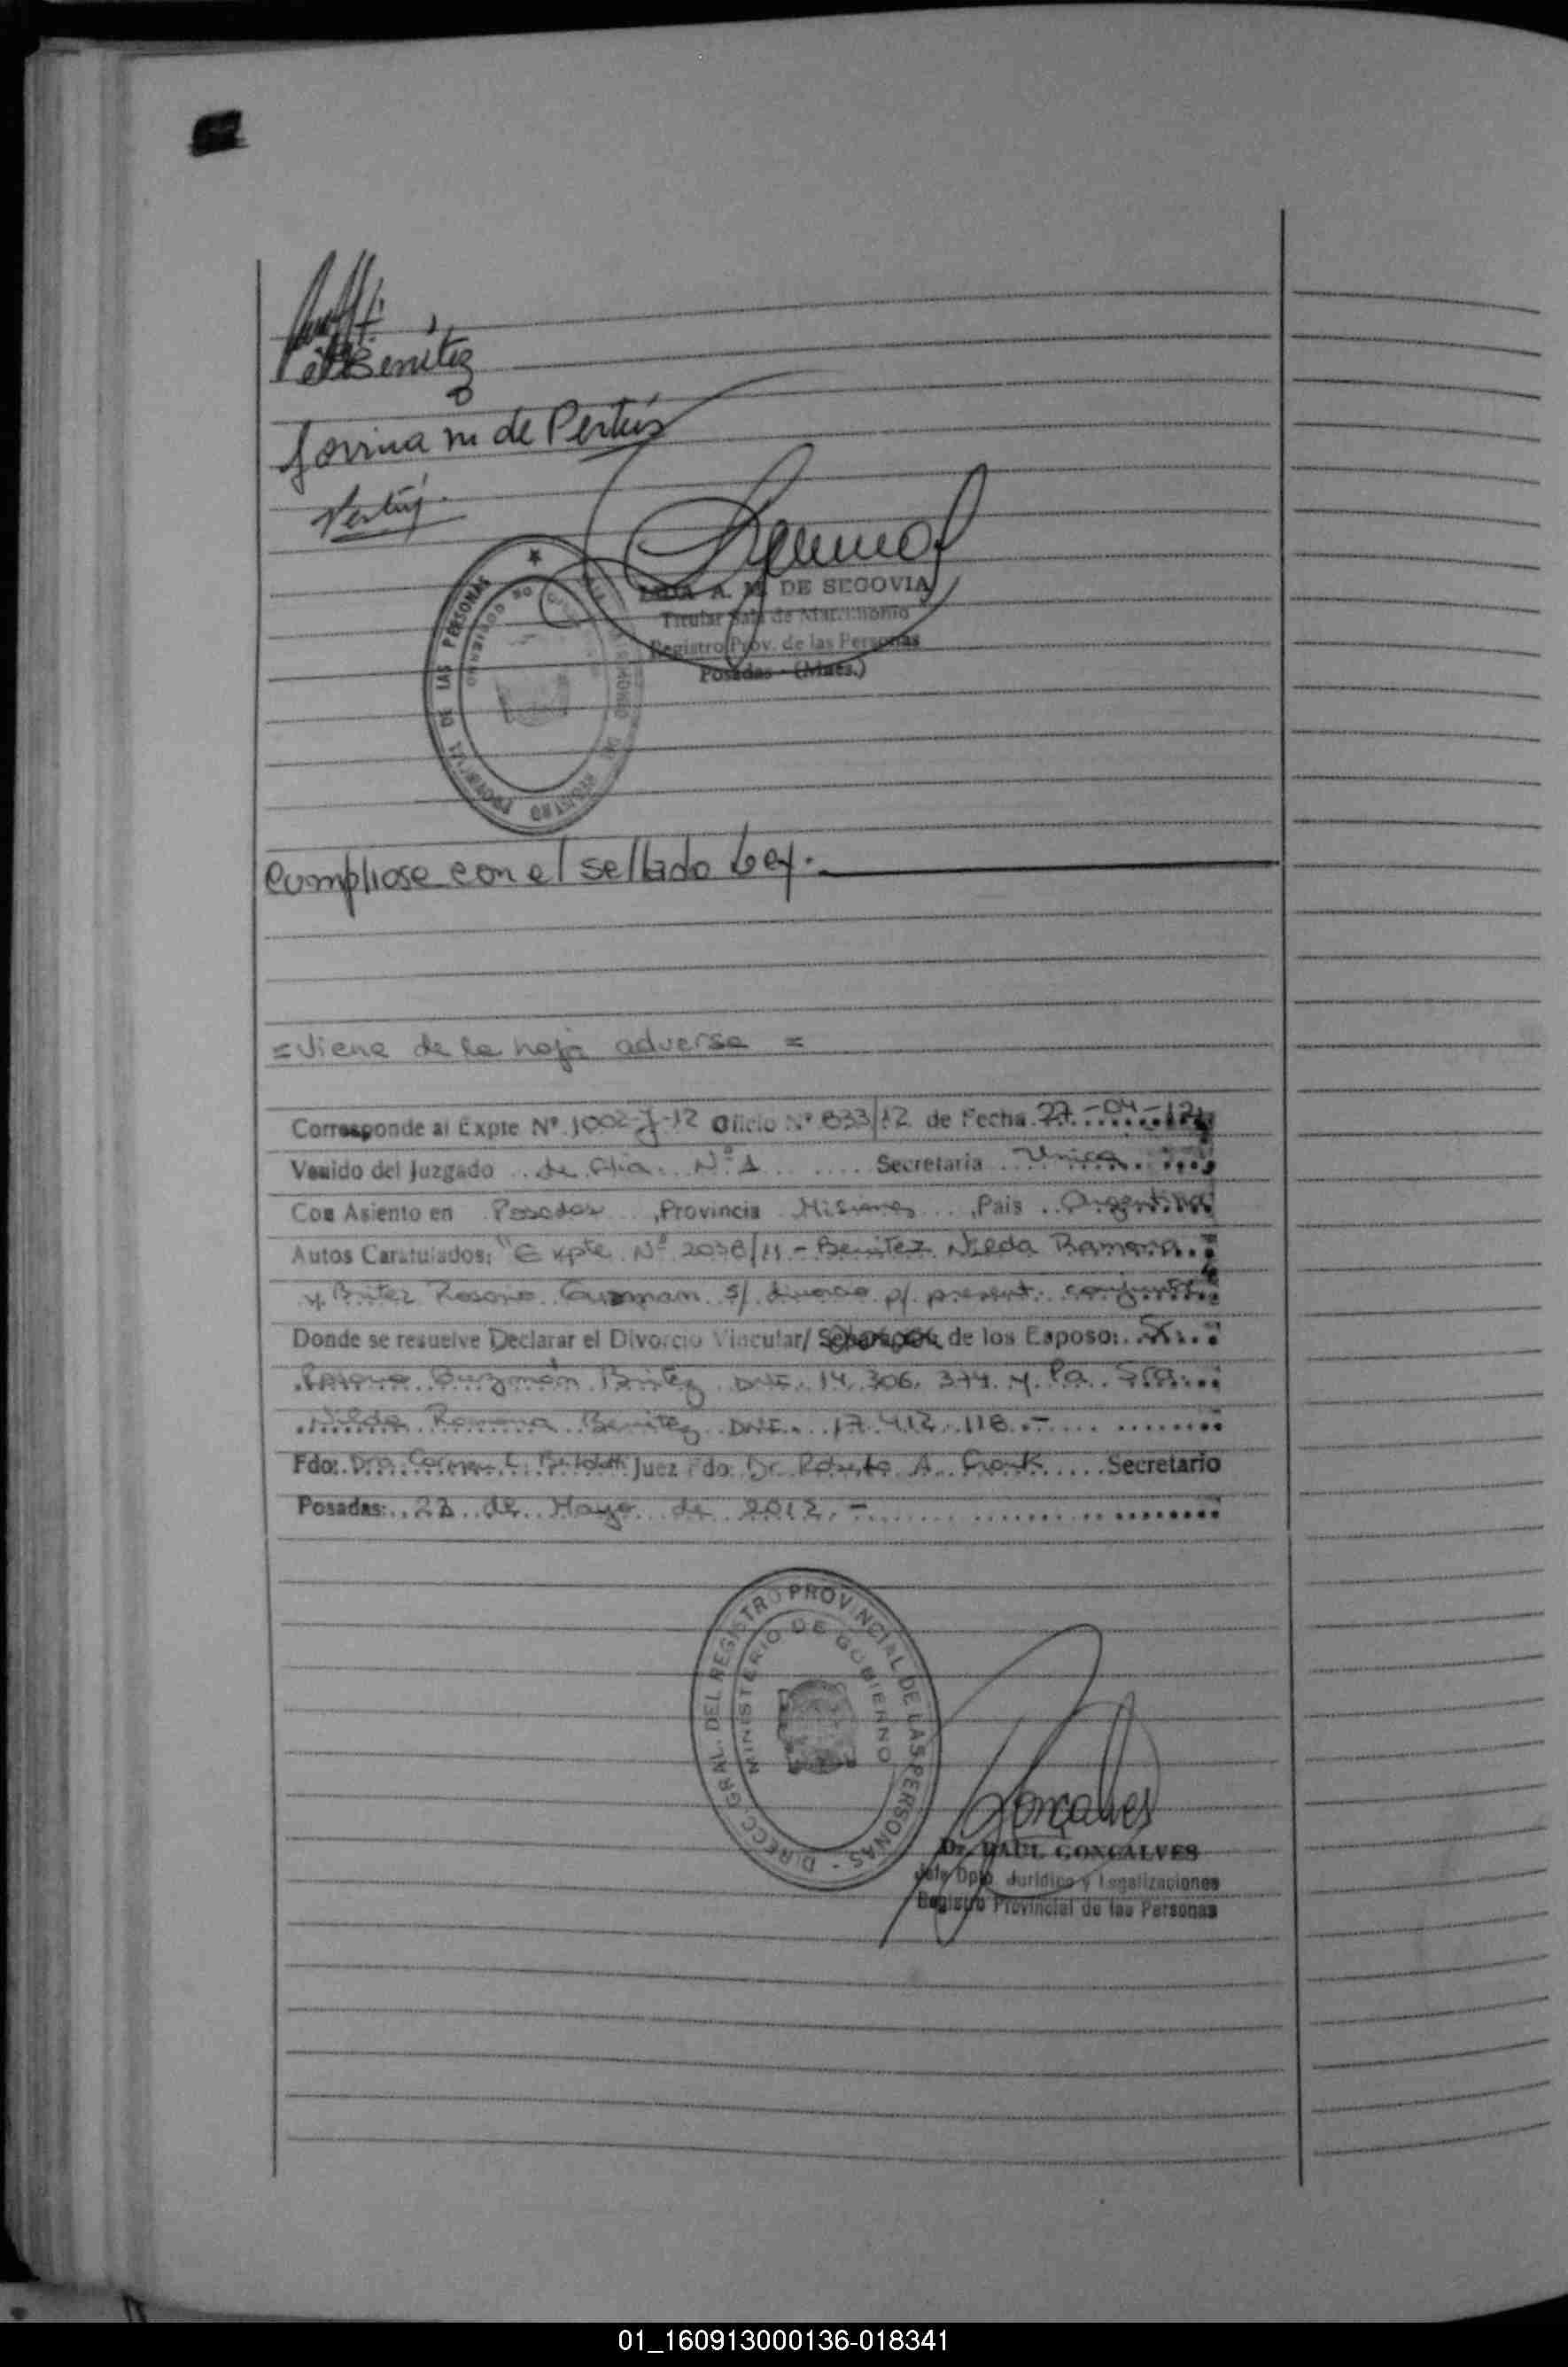 Benítez
m de Pertús
Pertús
REGISTRO PROVINCIAL DE LAS PERSONAS
A. M. DE SEGOVIA
Titular Sala de Matrimonio
Registro Prov. de las Personas
Posadas - (Mnes.)
Cumpliose con el sellado Ley.
= Viene de la hoja adversa =
Corresponde al Expte Nº 1002-J-12 Oficio Nº 833/12 de Fecha 27-04-12
Venido del Juzgado de Flia. Nº 1 Secretaria Unica
Con Asiento en Posadas, Provincia Misiones, Pais Argentina
Autos Caratulados: "Expte Nº 2038/11 - Benitez Nilda Ramona
y Britez Rosono Guzman s/ divorcio p/ present. conjunta
Donde se resuelve Declarar el Divorcio Vincular/ de los Esposo: Sr.
Guzmán Britez DNI. 14.306.374 y la Sra.
Nilda Ramona Benitez DNI. 17.412.118.-
Fdo: Dra Carmen C. Juez Fdo: Dr. Roberto A. Secretario
Posadas: 23 de Mayo de 2012.-
DIRECC. GRAL. DEL REGISTRO PROVINCIAL DE LAS PERSONAS
MINISTERIO DE GOBIERNO
Gonçalves
Dr. RAUL GONÇALVES
Jefe Dpto. Jurídico y Legalizaciones
Registro Provincial de las Personas
01_160913000136-018341